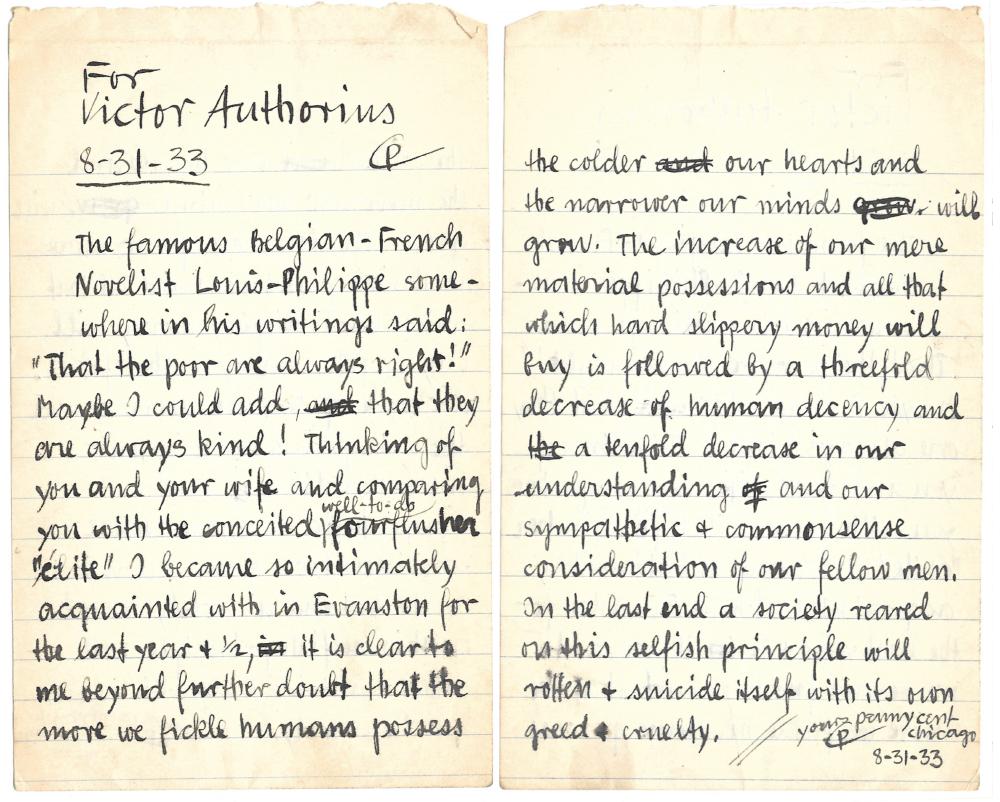 For
Victor Authorius
8-31-33 CP
The famous Belgian-French
Novelist Louis-Philippe some-
where in his writings said:
"That the poor are always right!"
Maybe I could add, and that they
are always kind! Thinking of
you and your wife and comparing
well-to-do
you with the conceited fourflusher
"élite" I became so intimately
acquainted with in Evanston for
the last year + 1/2, in it is clear to
me beyond further doubt that the
more we fickle humans possess
the colder and our hearts and
the narrower our minds grow. will
grow. The increase of our mere
material possessions and all that
which hard slippery money will
buy is followed by a threefold
decrease of human decency and
the a tenfold decrease in our
understanding of and our
sympathetic + commonsense
consideration of our fellow men.
In the last end a society reared
on this selfish principle will
rotten + suicide itself with its own
greed + cruelty. // yours penny cent
CP chicago
8-31-33